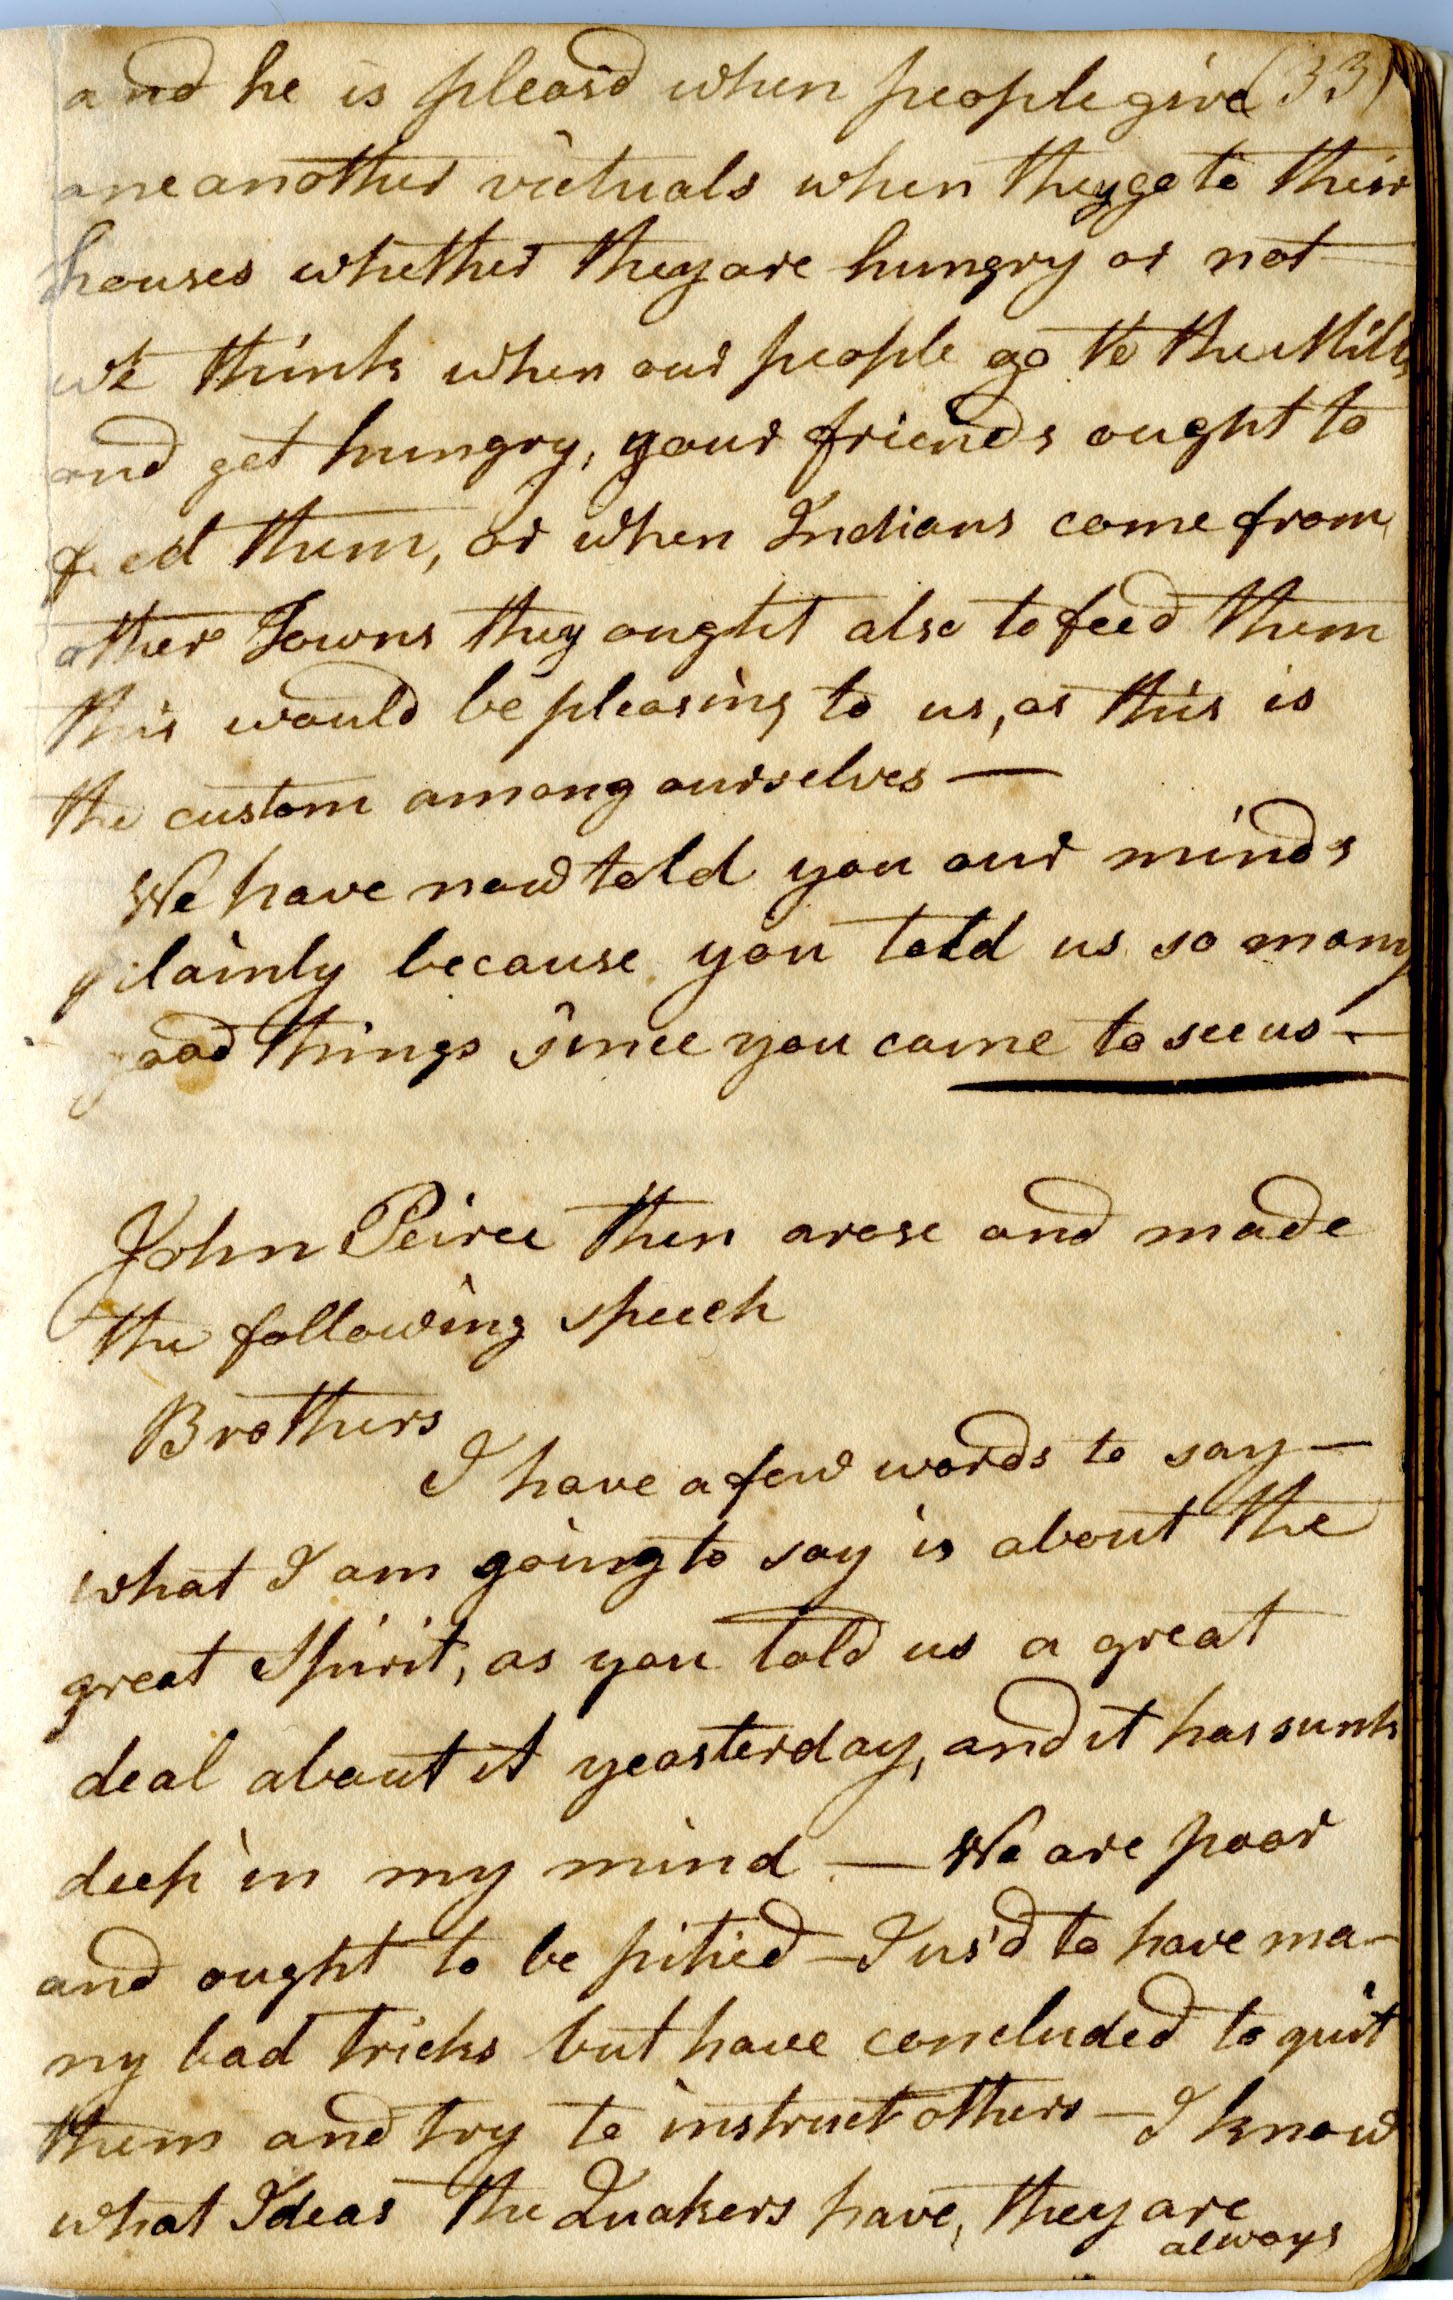 and he is pleas'd when people give (33)
one another victuals when they go to their
houses whether they are hungry or not —
we think when our people go to the Mills
and get hungry, your friends ought to
feed them, or when Indians come from
other Towns they ought also to feed them
this would be pleasing to us, as this is
the custom among ourselves —
We have now told you our minds
plainly because you told us so many
good things since you came to see us —
John Peirce then arose and made
the following speech
Brothers
I have a few words to say —
what I am going to say is about the
great Spirit, as you told us a great
deal about it yeasterday, and it has sunk
deep in my mind — We are poor
and ought to be pitied — I us'd to have ma-
ny bad tricks but have concluded to quit
them and try to instruct others — I know
what Ideas the Quakers have, they are
always